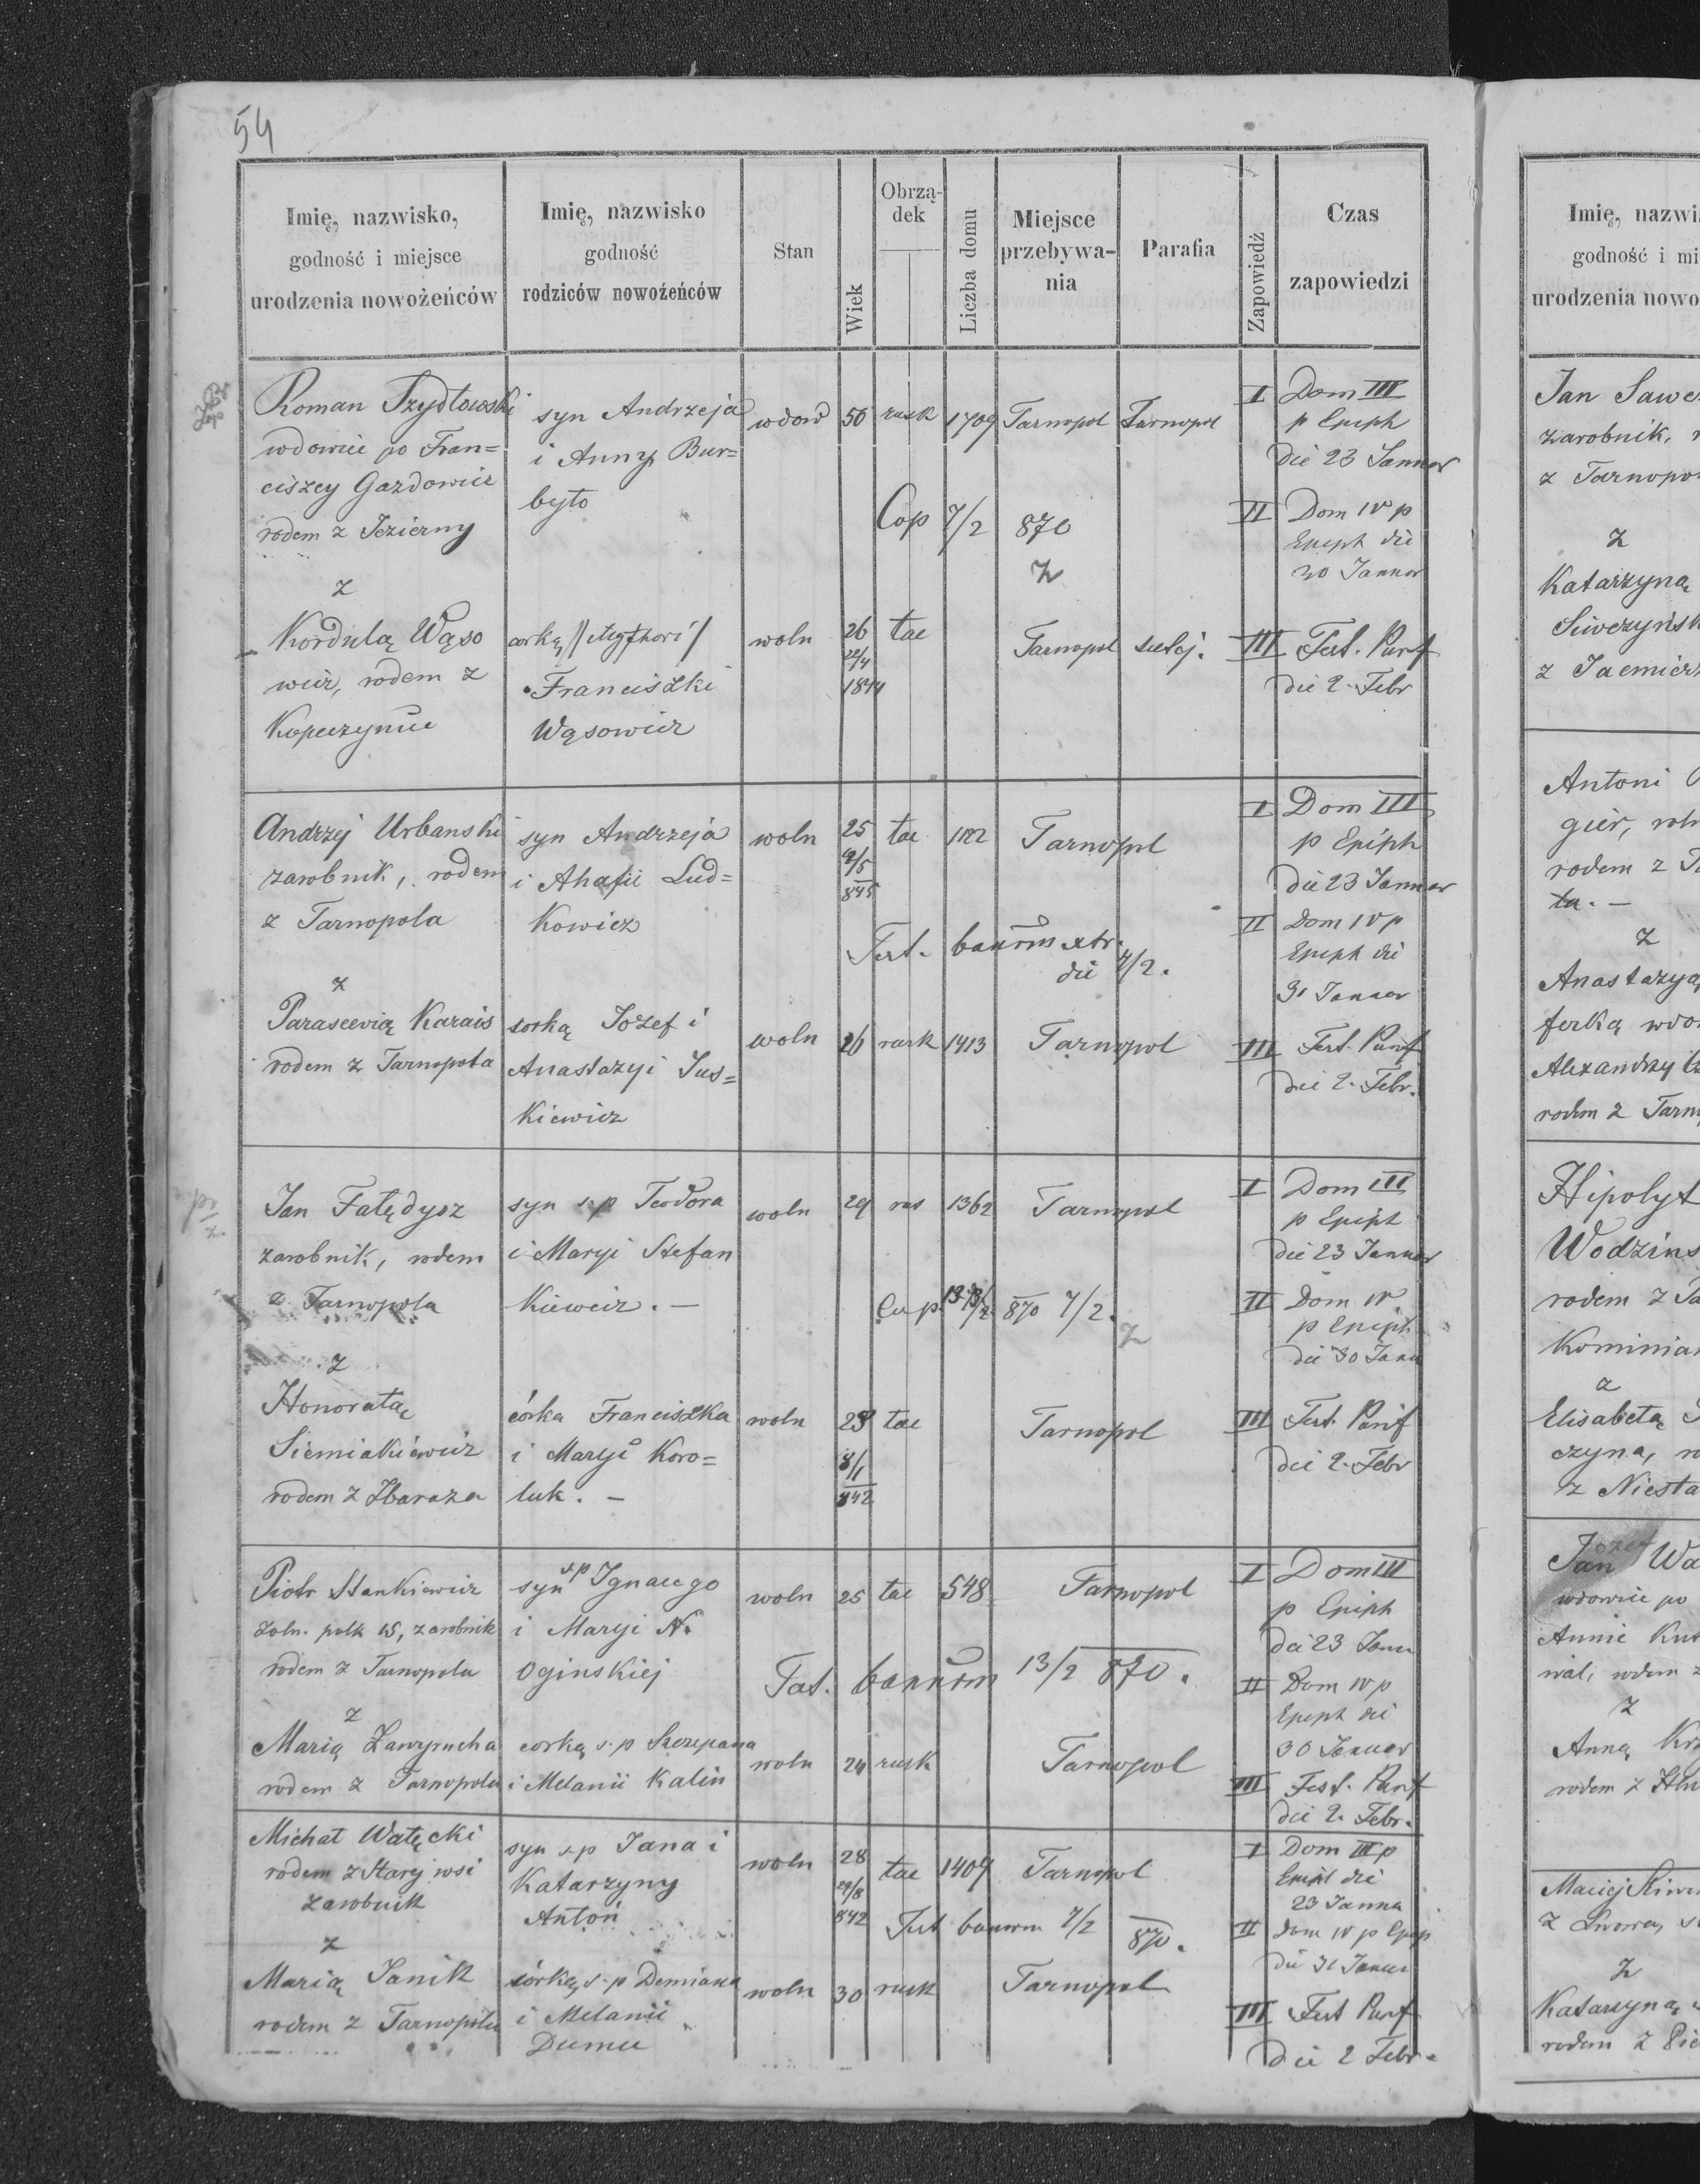 54
Imię, nazwisko,
godność i miejsce
urodzenia nowożeńców
Imię, nazwisko
godność
rodziców nowożeńców
Stan
Wiek
Obrzą-
dek
Liczba domu
Miejsce
przebywa-
nia
Parafia
Zapowiedź
Czas
zapowiedzi
Roman Szydłowski
wdowiec po Fran=
ciszcy Gazdowicz
rodem z Jezierny
syn Andrzeja
i Anny Bur=
byto
wdow 50 rusk 1709 Tarnopol Tarnopol
I Dom III
p Epiph
die 23 Januar
Cop 7/2 870
II Dom IV p
Epiph die
30 Januar
z
z
Kordulą Wąso
wicz, rodem z
Kopeczyniec
corką
Franciszki
Wąsowicz
woln 26
22/4
1844
lac
Tarnopol tutej.
III Fest. Purf
die 2. Febr
Andrzej Urbanski
zarobnik, rodem
z Tarnopola
syn Andrzeja
i Ahafii Lud=
kowicz
woln 25
9/5
845
lac 1122 Tarnopol
I Dom III
p Epiph
die 23 Januar
Test. bannrm extr.
die 7/2.
II Dom IV p
Epiph die
31 Januar
z
Parascevią Karais
rodem z Tarnopola
corką Jozef i
Anastazyi Jus=
kiewicz
woln 26 rusk 1413 Tarnopol
III Fest. Purif
die 2. Febr.
Jan Fałędysz
zarobnik, rodem
z Tarnopola
syn s.p Teodora
i Maryi Stefan
kiewicz. —
woln 29 rus 1362 Tarnopol
I Dom III
p Epiph
die 23 Januar
Cop. 870 7/2.
II Dom IV
p Epiph
die 30 Janu
z
z
Honoratą
Siemiakiewicz
rodem z Zbaraza
córka Franciszka
i Maryi Koro=
luk. —
woln 28
8/1
842
lac
Tarnopol
III Fest. Purif
die 2. Febr
Piotr Stankiewicz
żoln. polk 15, zarobnik
rodem z Tarnopola
syn s.p Ignacego
i Maryi N.
Oginskiej
woln 25 lac 548 Tarnopol
I Dom III
p Epiph
die 23 Janu
Test. bannrm 13/2 870.
II Dom IV p
Epiph die
30 Januar
z
Marią Ławrynucha
rodem z Tarnopola
corką s.p Szczepana
i Melanii Kalin
woln 24 rusk Tarnopol
III Fest. Purif
die 2. Febr.
Michał Wałęcki
rodem z Starej wsi
zarobnik
syn s.p Jana i
Katarzyny
Antoń
woln 28
29/8
842
lac 1409 Tarnopol
I Dom III p
Epiph die
23 Janua
Test bannrm 7/2 870.
II Dom IV p Epip
die 31 Januar
z
Marią Janik
rodem z Tarnopola
córką s.p Demiana
i Melanii
Dumu
woln 30 rusk Tarnopol
III Fest Purf
die 2 Febr.
Imię, nazwi
godność i mi
urodzenia nowo
Jan Sawc
zarobnik, r
z Tarnopo
z
Katarzyną
Siwczyńsk
z Jacmierz
Antoni
gier, roln
rodem z Ta
la. —
z
Anastazyą
ferką wdo
Alexandry
rodem z Tarn
Hipolyt
Wodzins
rodem z Ta
kominiar
z
Elisabetą
czyna, ro
z Niesta
Jan Wa
wdowiec po
Annie Kus
rodem z
z
Anną Kr
rodem z
Maciej
z Lwowa,
z
Katarzyną
rodem z